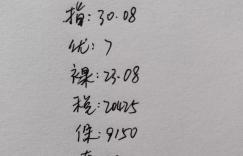 指:30.08
优:7
裸:23.08
税:20425
保:9150